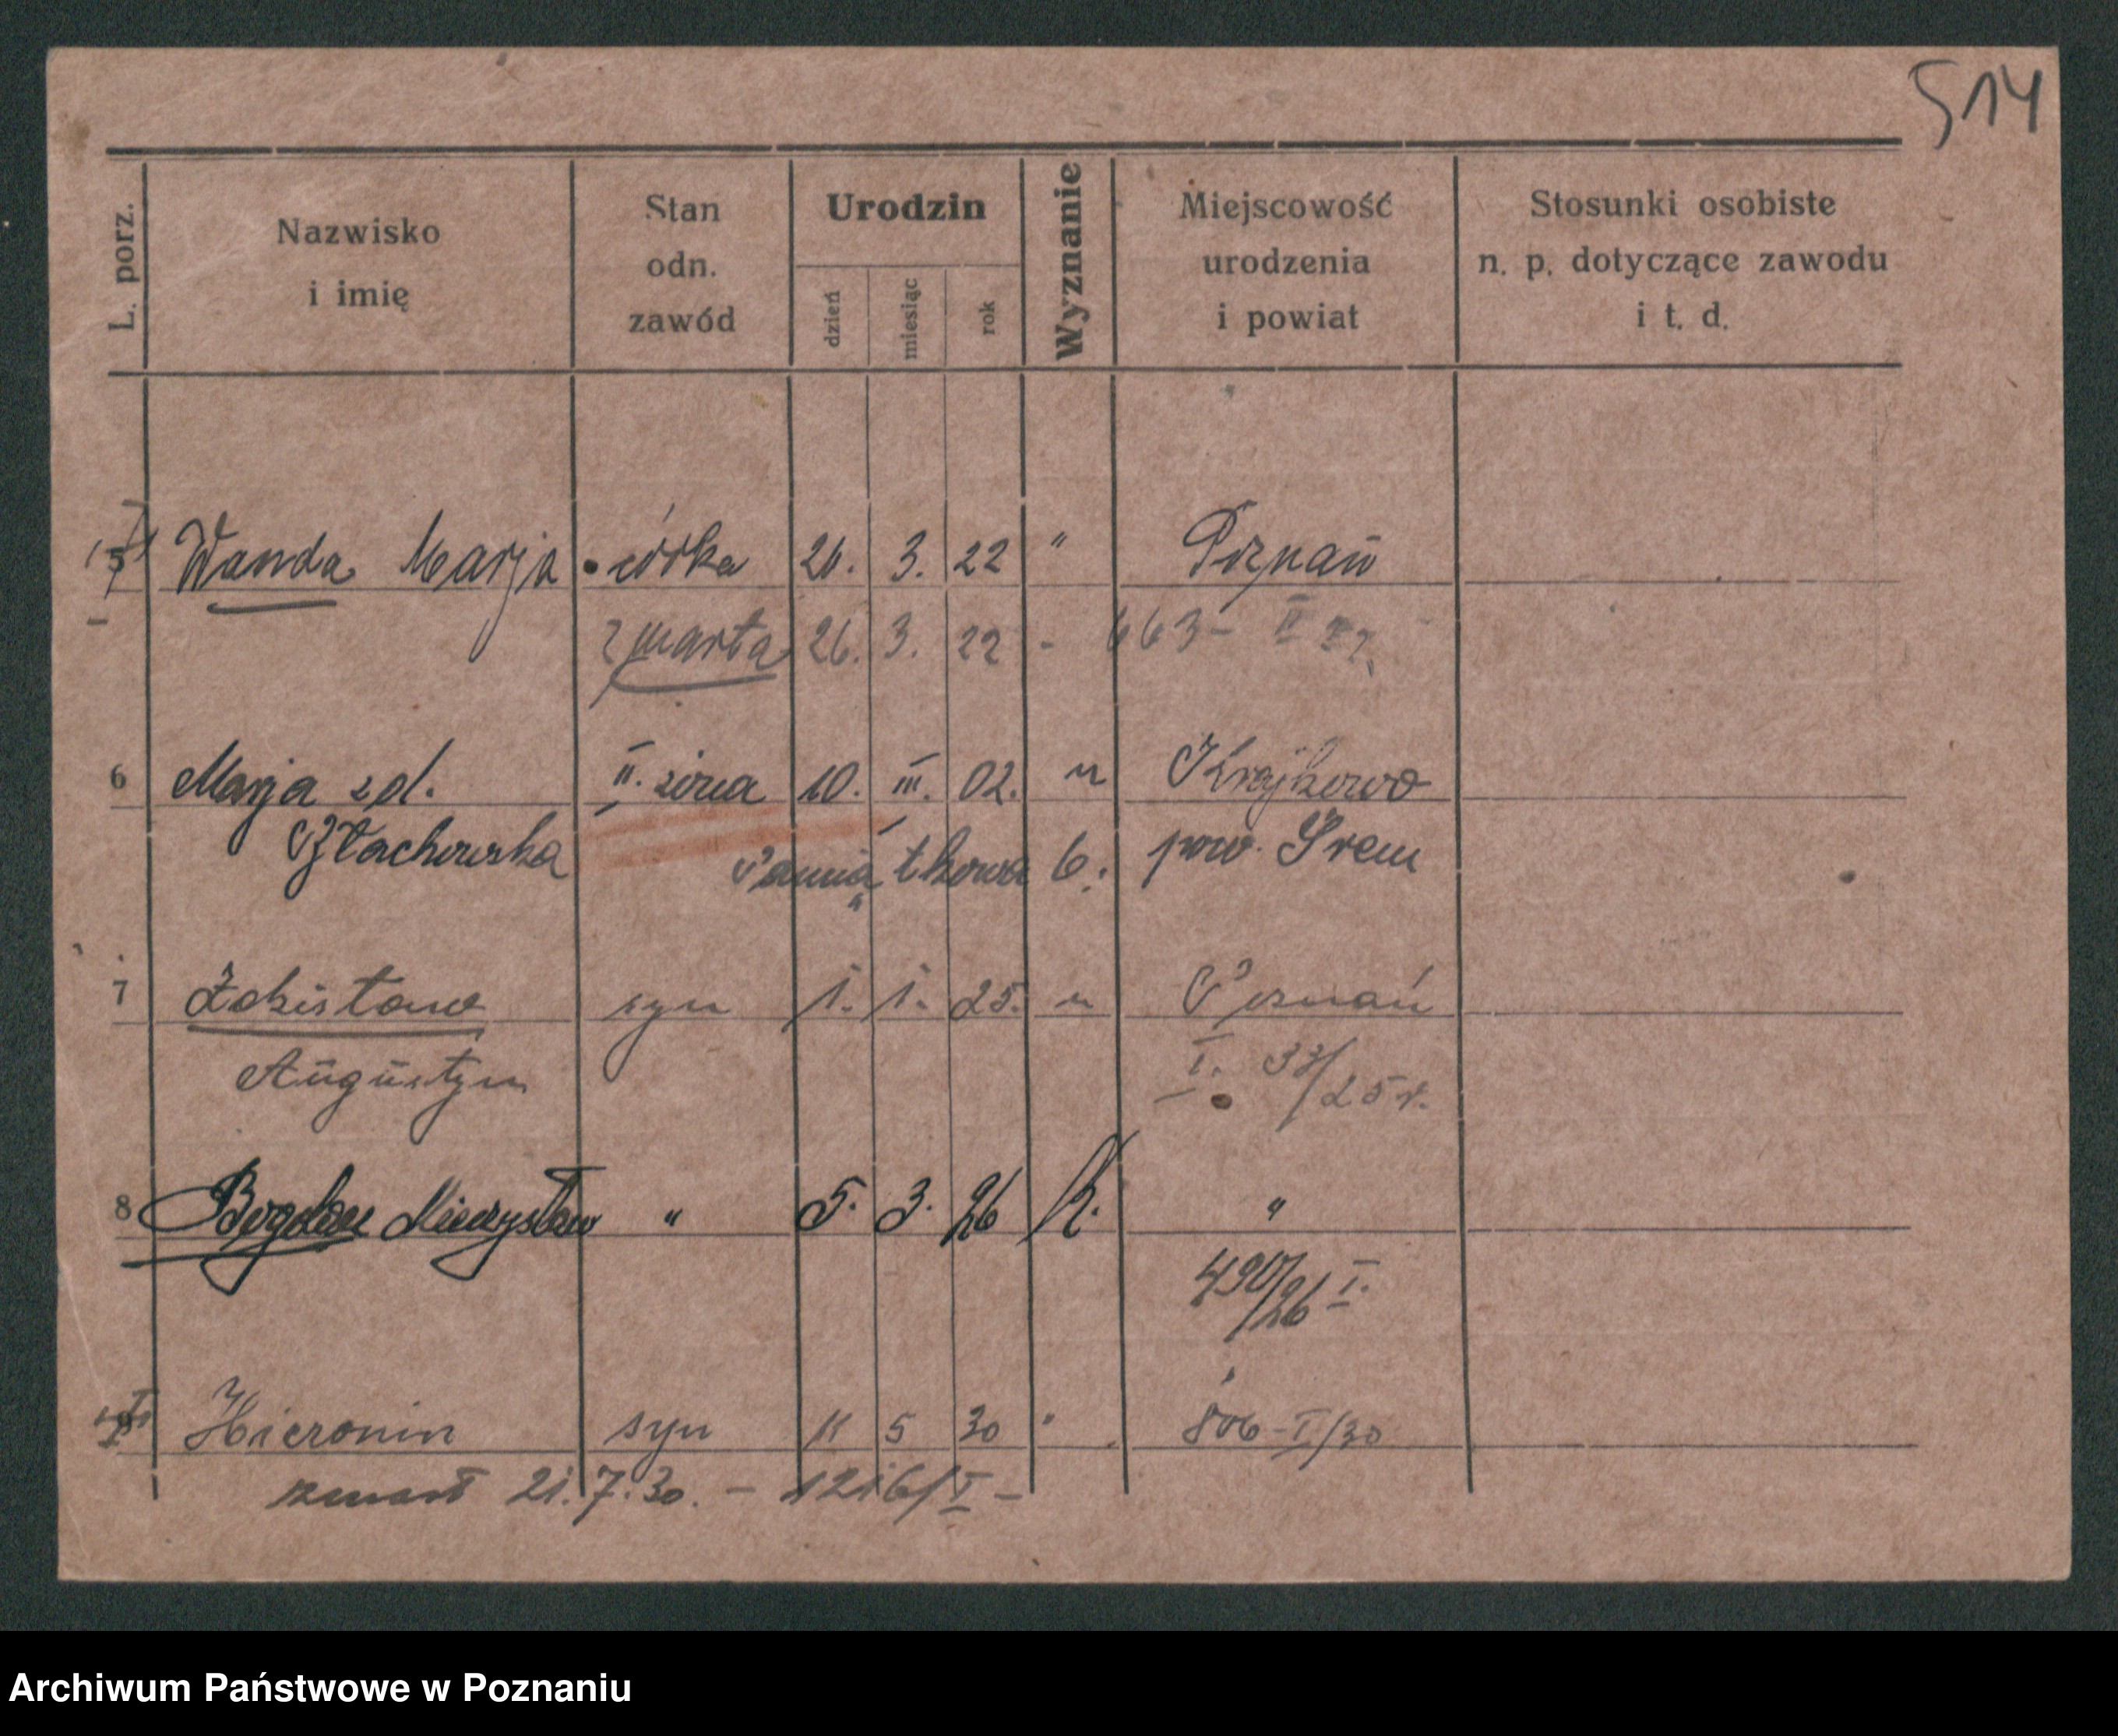 514
L. porz.
Nazwisko i imię
Stan odn. zawód
Urodzin
dzień miesiąc rok
Wyznanie
Miejscowość urodzenia i powiat
Stosunki osobiste n. p. dotyczące zawodu i t. d.
5 Wanda Marja córka 26. 3. 22 " Poznań
zmarła 26. 3. 22 - 663- II 22.
6 Marja zd. II. żona 10. III. 02. " Krajkowo
6. pow. Śrem
7 Zdzisław syn 1. 1. 25. " Poznań
Augustyn I. 33/25 r.
8 Bogdan Mieczysław " 5. 3. 26 k. "
490/26 I.
Hieronim syn 11 5 30 " 806-I/30
zmarł 21.7.30. - 1216/I -
Archiwum Państwowe w Poznaniu